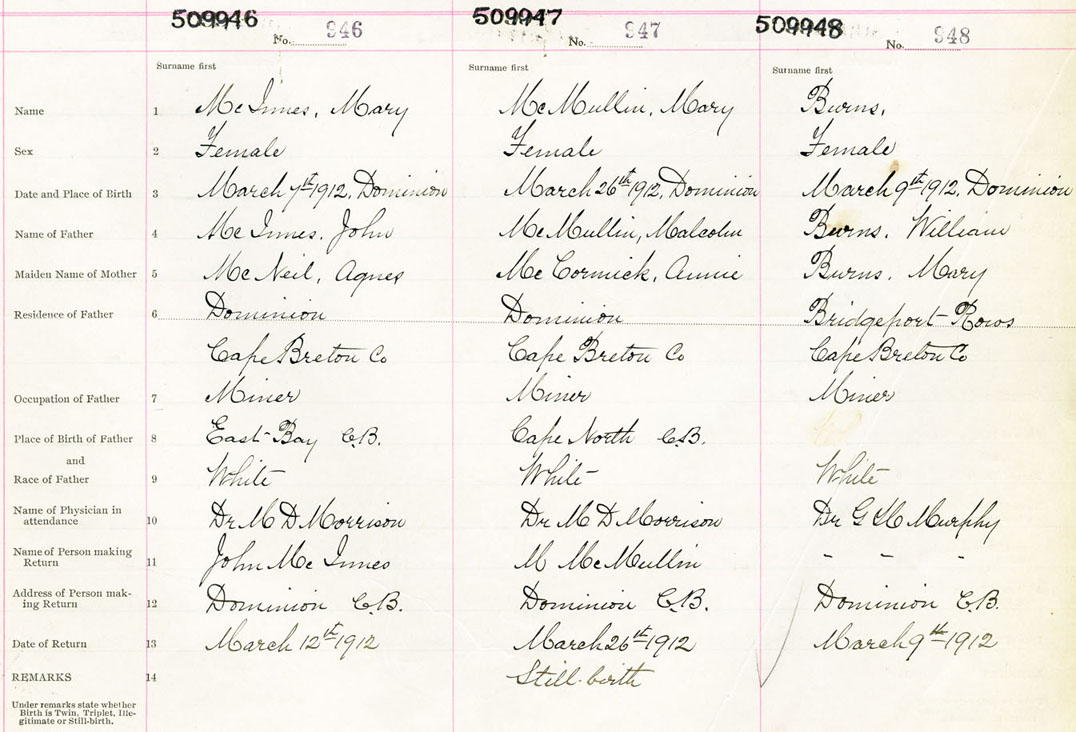 509946 509947 509948
No. 946 No. 947 No. 948
Surname first Surname first Surname first
Name 1 McInnes, Mary McMullin, Mary Burns,
Sex 2 Female Female Female
Date and Place of Birth 3 March 7th 1912, Dominion March 26th 1912, Dominion March 9th 1912, Dominion
Name of Father 4 McInnes, John McMullin, Malcolm Burns, William
Maiden Name of Mother 5 McNeil, Agnes McCormick, Annie Burns, Mary
Residence of Father 6 Dominion Dominion Bridgeport Rows
Cape Breton Co Cape Breton Co Cape Breton Co
Occupation of Father 7 Miner Miner Miner
Place of Birth of Father 8 East Bay C.B. Cape North C.B.
and
Race of Father 9 White White White
Name of Physician in
attendance 10 Dr M D Morrison Dr M D Morrison Dr G H Murphy
Name of Person making
Return 11 John McInnes M McMullin - - -
Address of Person mak-
ing Return 12 Dominion C.B. Dominion C.B. Dominion C.B.
Date of Return 13 March 12th 1912 March 26th 1912 March 9th 1912
REMARKS 14 Still-birth
Under remarks state whether
Birth is Twin, Triplet, Ille-
gitimate or Still-birth.